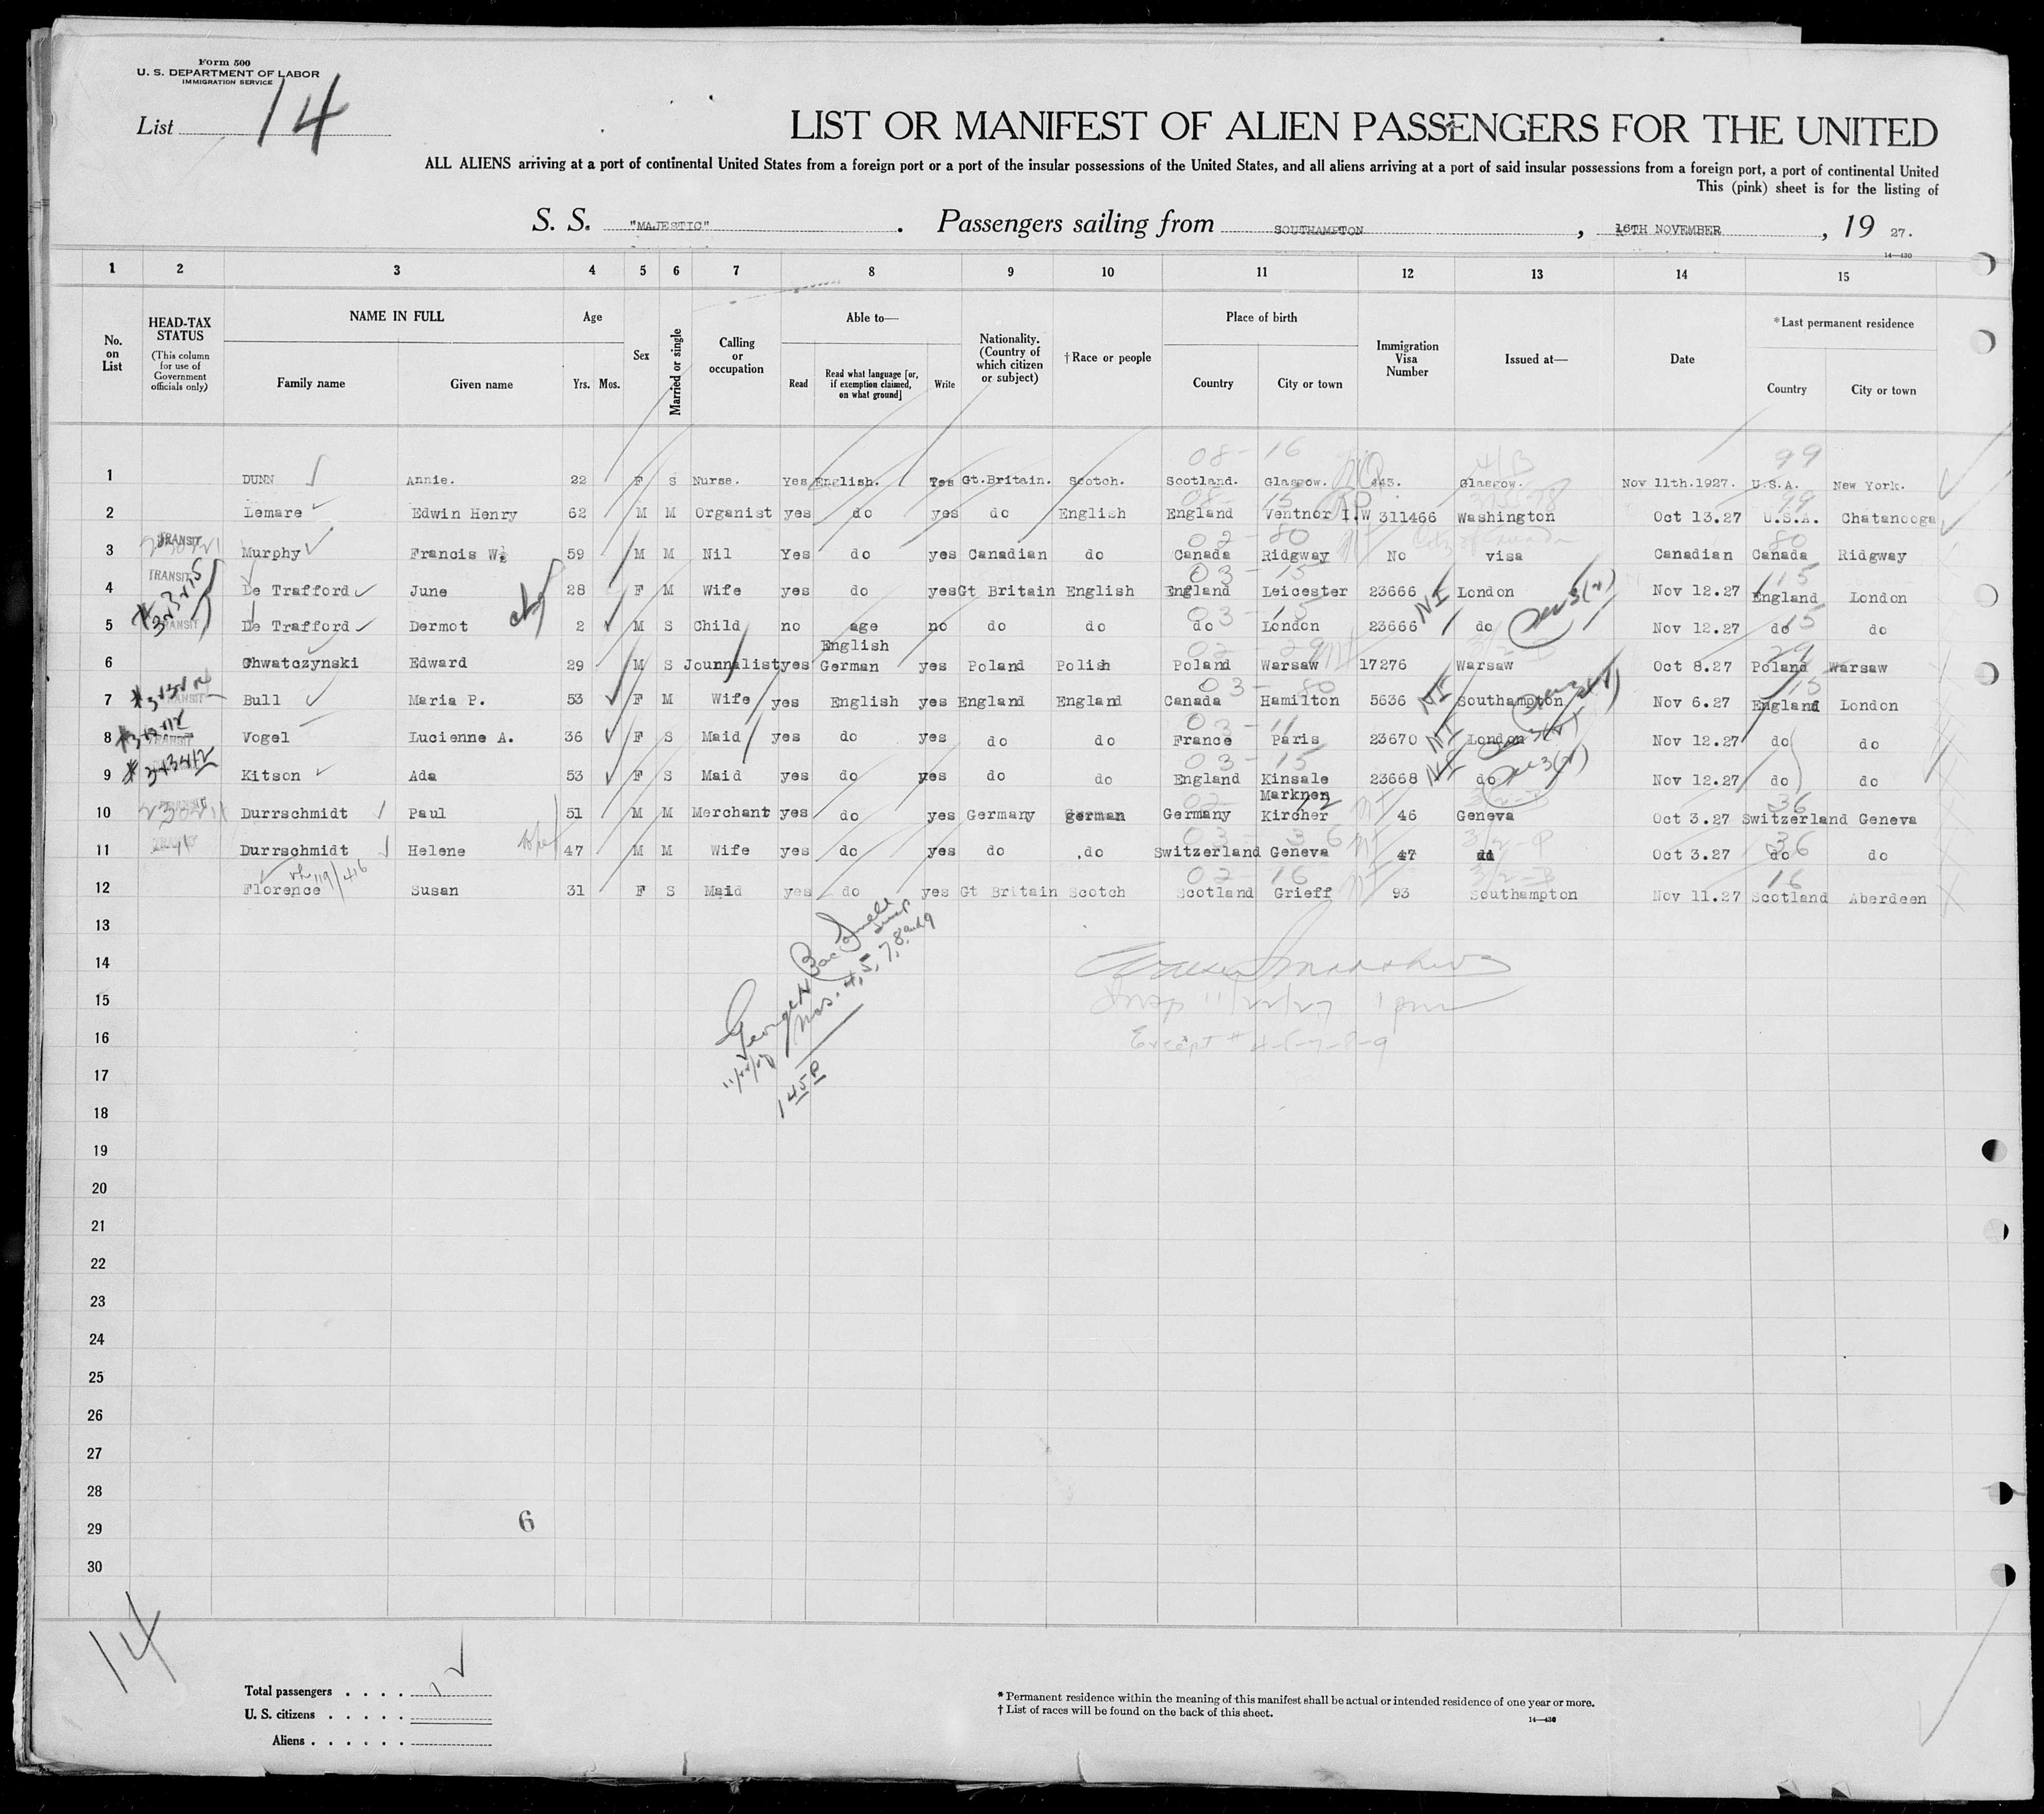 Form 500
U. S. DEPARTMENT OF LABOR
IMMIGRATION SERVICE
List 14
LIST OR MANIFEST OF ALIEN PASSENGERS FOR THE UNITED
ALL ALIENS arriving at a port of continental United States from a foreign port or a port of the insular possessions of the United States, and all aliens arriving at a port of said insular possessions from a foreign port, a port of continental United
This (pink) sheet is for the listing of
S. S. "MAJESTIC" . Passengers sailing from SOUTHAMPTON , 16TH NOVEMBER , 19 27.
14—430
1 2 3 4 5 6 7 8 9 10 11 12 13 14 15
No. on List HEAD-TAX STATUS (This column for use of Government officials only) NAME IN FULL Family name Given name Age Yrs. Mos. Sex Married or single Calling or occupation Able to— Read Read what language [or, if exemption claimed, on what ground] Write Nationality. (Country of which citizen or subject) †Race or people Place of birth Country City or town Immigration Visa Number Issued at— Date *Last permanent residence Country City or town
08 - 16 99
1 DUNN Annie. 22 F S Nurse. Yes English. Yes Gt.Britain. Scotch. Scotland. Glasgow. 443. Glasgow. Nov 11th.1927. U.S.A. New York.
08 - 15 99
2 Lemare Edwin Henry 62 M M Organist yes do yes do English England Ventnor I.W 311466 Washington Oct 13.27 U.S.A. Chatanooga
TRANSIT 02 - 80 80
3 Murphy Francis W 59 M M Nil Yes do yes Canadian do Canada Ridgway No visa Canadian Canada Ridgway
TRANSIT 03 - 15 15
4 De Trafford June 28 F M Wife yes do yes Gt Britain English England Leicester 23666 NI London Nov 12.27 England London
03 - 15 15
5 TRANSIT De Trafford Dermot 2 M S Child no age no do do do London 23666 do Nov 12.27 do do
English 02 - 29 29
6 Chwatczynski Edward 29 M S Journalist yes German yes Poland Polish Poland Warsaw 17276 Warsaw Oct 8.27 Poland Warsaw
03 - 80 15
7 TRANSIT Bull Maria P. 53 F M Wife yes English yes England England Canada Hamilton 5636 NI Southampton Nov 6.27 England London
03 - 11
8 TRANSIT Vogel Lucienne A. 36 F S Maid yes do yes do do France Paris 23670 NI London Nov 12.27 do do
03 - 15
9 Kitson Ada 53 F S Maid yes do yes do do England Kinsale 23668 NI do Nov 12.27 do do
02 Marknen 36
10 TRANSIT Durrschmidt Paul 51 M M Merchant yes do yes Germany german Germany Kircher 46 Geneva Oct 3.27 Switzerland Geneva
03 - 36 36
11 Durrschmidt Helene 47 M M Wife yes do yes do do Switzerland Geneva 47 Oct 3.27 do do
02 - 16 16
12 Florence Susan 31 F S Maid yes do yes Gt Britain Scotch Scotland Grieff 93 Southampton Nov 11.27 Scotland Aberdeen
13
14
15 Insp 11/22/27 1 pm
16 Except # 4-5-7-8-9
George
Nos. 4, 5, 7, 8, and 9
11/22/27
1 45 P
17
18
19
20
21
22
23
24
25
26
27
28
29 6
30
14
Total passengers . . . .
U. S. citizens . . . . .
Aliens . . . . . .
* Permanent residence within the meaning of this manifest shall be actual or intended residence of one year or more.
† List of races will be found on the back of this sheet.
14—430